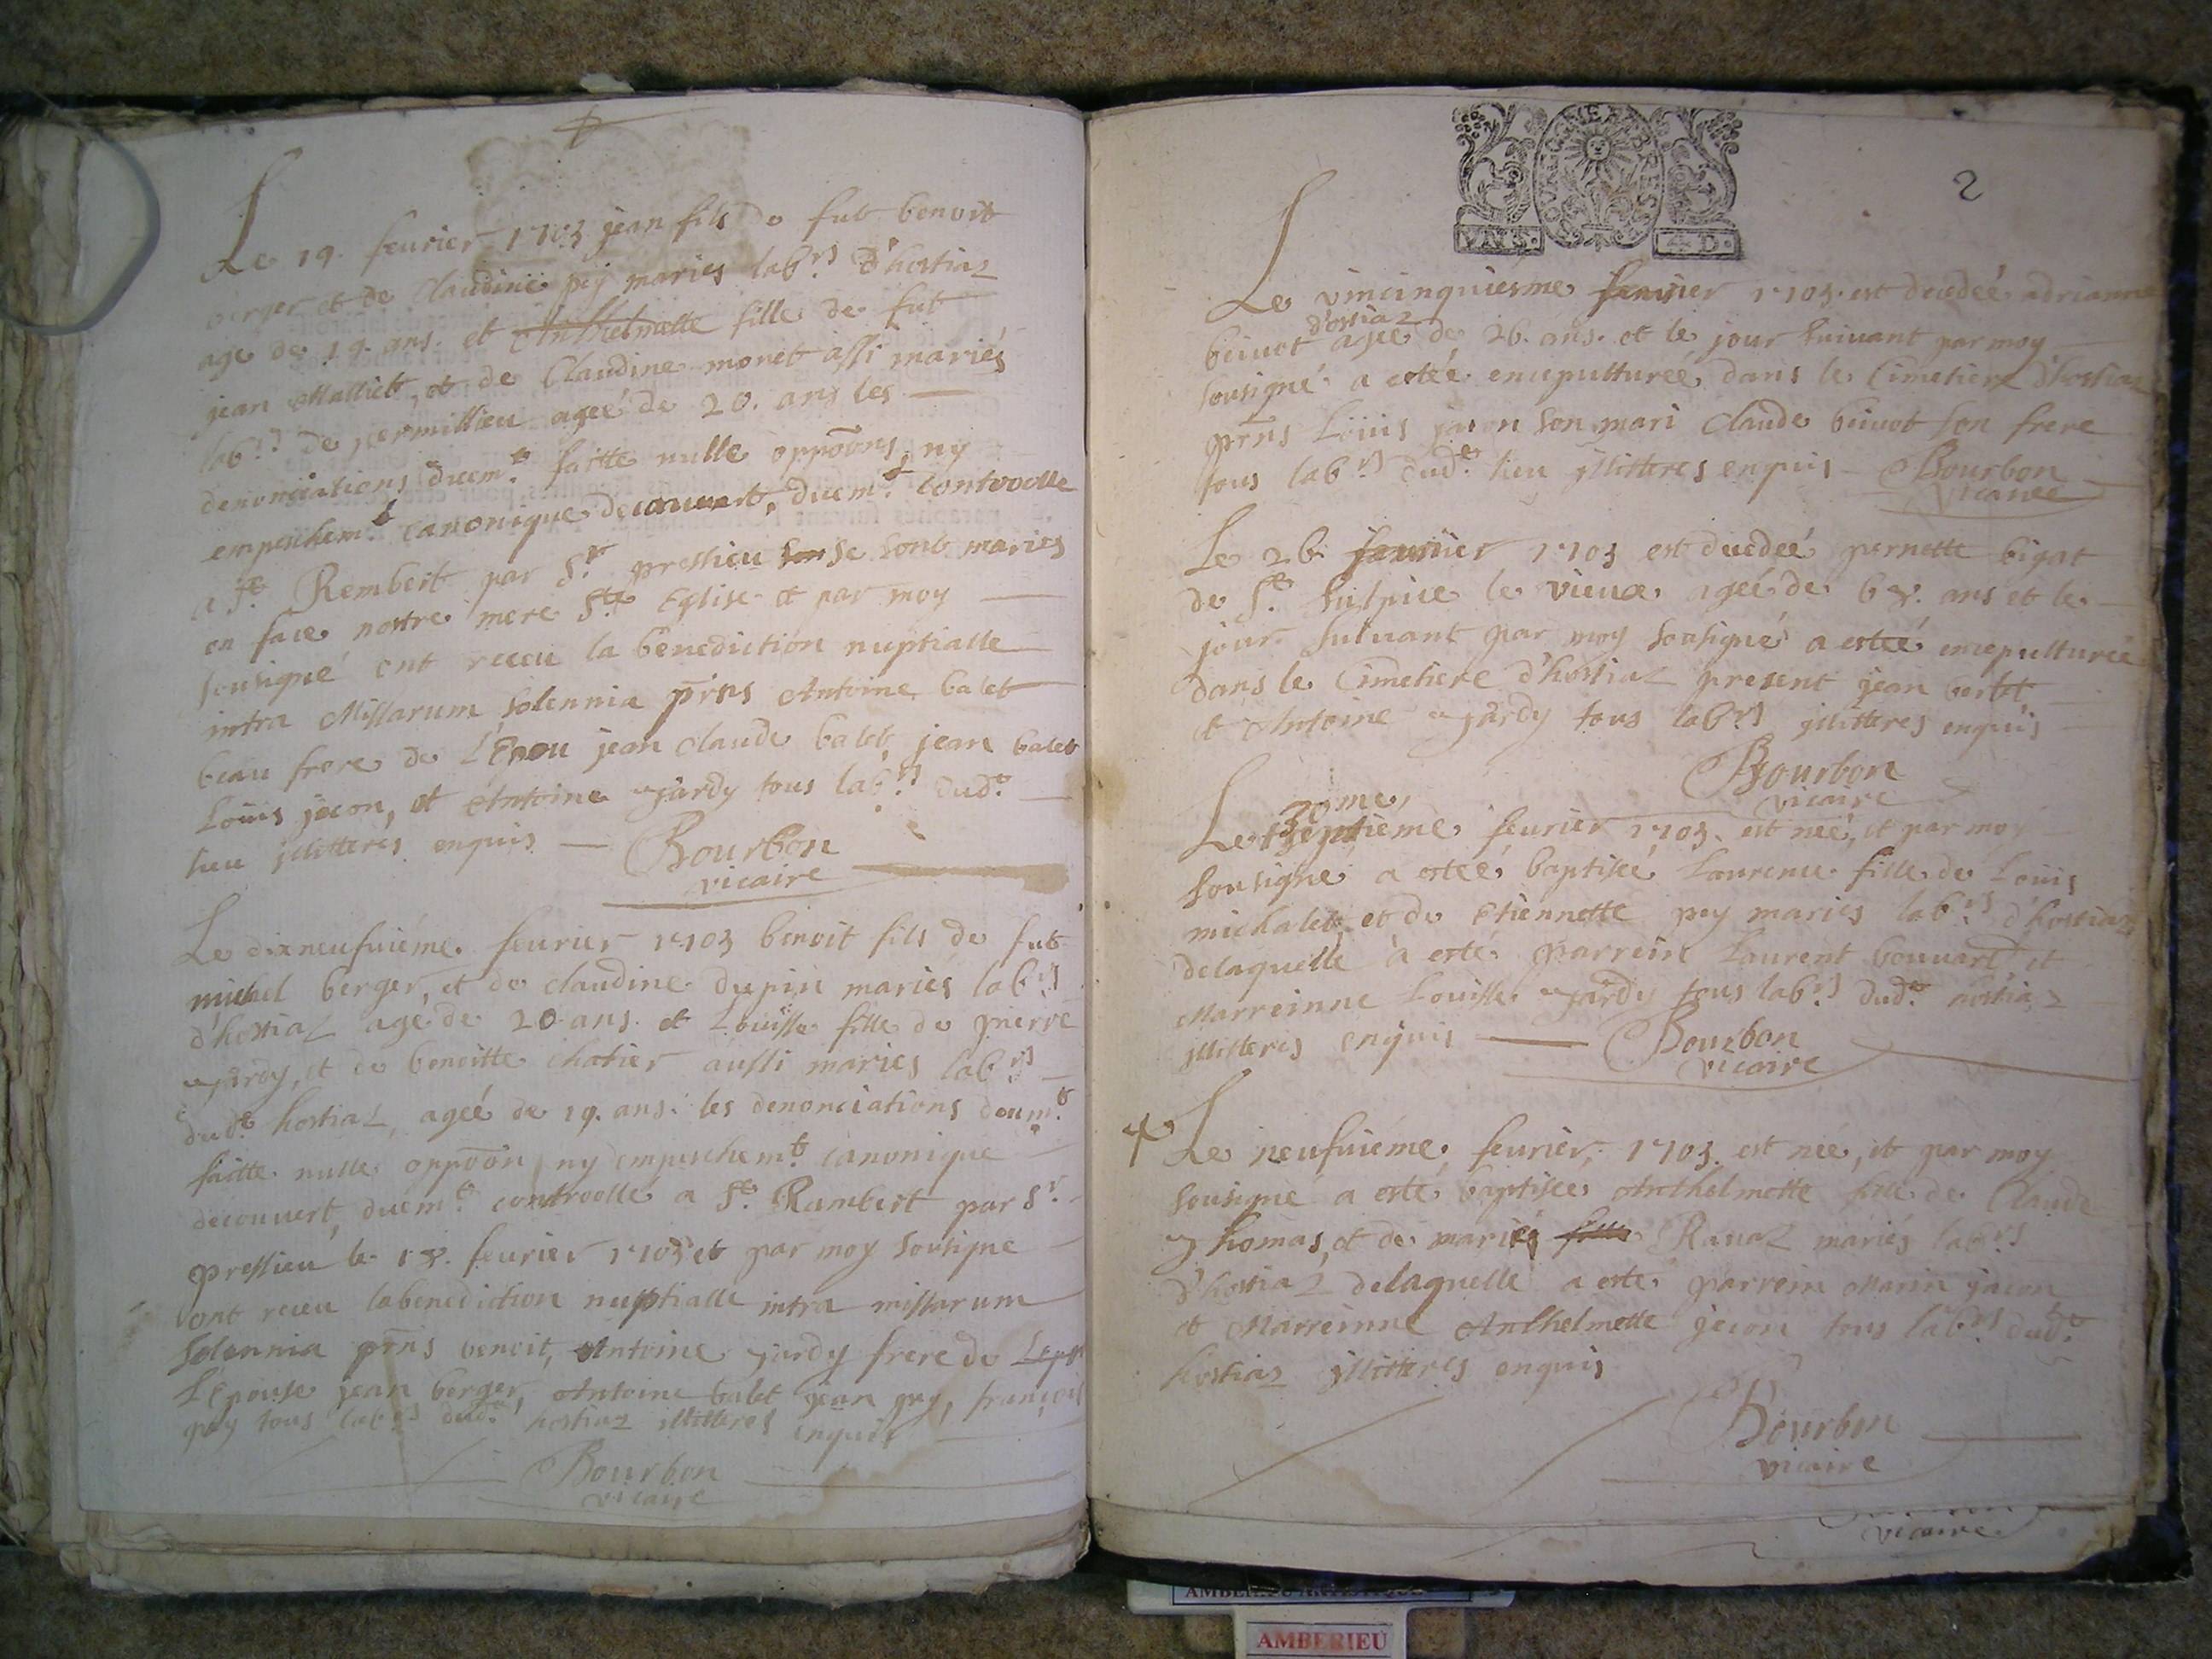 Le 19. feurier 1703 jean fils de fut benoit
berger et de Claudine pey maries labrs d'hostiaz
age de 19. ans. et Anthelmette fille de fut
jean Mallict, et de Claudine monet assi mariés
labrs de permillieu ageé de 20. ans les
denonciations duemt faitte nulle oppoons, ny
empeschemt canonique decouuert, duemt controolle
a St Rembert par Sr pressieu se sont maries
en face nostre mere Ste Eglise et par moy
sousigné ont receu la benediction nuptialle
intra Missarum solennia prns Antoine balet
beau frere de L'Epou jean claude balet, jean balet
Louis jacon, et Antoine jardy tous labrs dudt
lieu jllitteres enquis Bourbon
vicaire
Le dixneufuiéme. feurier 1703 benoit fils de fut
michel berger, et de claudine dupin mariés labrs
d'hostiaz age de 20 ans. et Louisse fille de pierre
jardy, et de benoitte chatier aussi maries labrs
dudt hostiaz, ageé de 19. ans. les denonciations deumt
faitte nulle oppoon ny empeschemt canonique
decouuert, duemt controollé a St. Rambert par Sr.
pressieu le 18. feurier 1703 et par moy sousigne
ont receu labenediction nuptialle intra missarum
solennia prns benoit, Antoine jardy frere de
L'Epouse jean berger, Antoine balet jean pey, françois
pey tous labrs dudt hostiaz illitteres enquis
Bourbon
vicaire
2
VN S. 4 D.
Le vincinquiesme feurier 1703. est decedeé adrianne
d'ostiaz
beiuot ageé de 26. ans. et le jour suiuant par moy
sousigné a esteé encepultureé dans le Cimetiere d'hostiaz
prns Louis jacon son mari Claude beiuot son frere
tous labrs dudt lieu jllitteres enquis Bourbon
vicaire
Le 26 feurier 1703 est decedeé pernette bigat
de St. Sulpice le vieux ageé de 68. ans et le
jour suluant par moy sousigné a esteé encepultureé
dans le Cimetiere d'hostiaz present jean berlet
et Antoine jardy tous labrs jllitteres enquis
Bourbon
vicaire
Le 20me, feurier 1703. est neé, et par moy
sousigné a esteé baptiseé Laurence fille de Louis
michalet, et de Etiennette pey maries labrs d'hostiaz
delaquelle a esté parrein Laurent bouuart et
Marreinne Louisse jardy tous labrs dudt hostiaz
jllitteres enquis Bourbon
vicaire
Le neufuiéme, feurier, 1703. est neé, et par moy
sousigné a esté, baptisee Anthelmette fille de Claude
Thomas, et de mariés Rauaz mariés labrs
d'hostiaz delaquelle a esté parrein Marin jacon
et Marreinne Anthelmette jacon tous labrs dudt
hostiaz jllitteres enquis
Bourbon
vicaire
vicaire
AMBERIEU